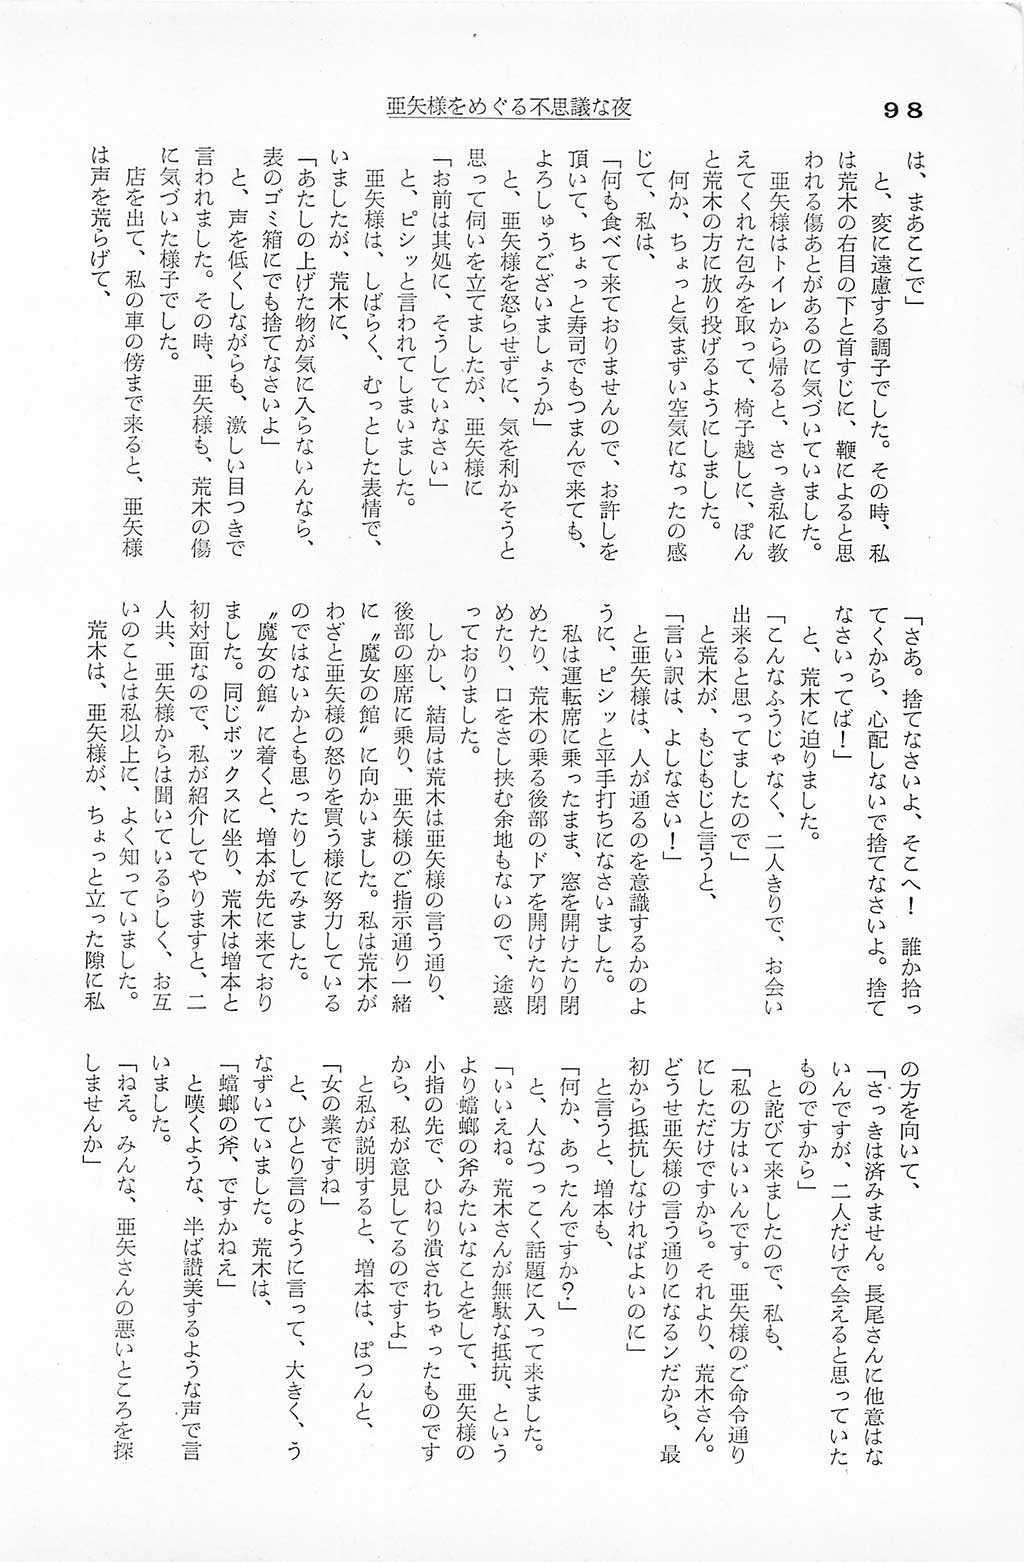 亜矢様をめぐる不思議な夜
98
は、まあここで」
　と、変に遠慮する調子でした。その時、私
は荒木の右目の下と首すじに、鞭によると思
われる傷あとがあるのに気づいていました。
　亜矢様はトイレから帰ると、さっき私に教
えてくれた包みを取って、椅子越しに、ぽん
と荒木の方に放り投げるようにしました。
　何か、ちょっと気まずい空気になったの感
じて、私は、
「何も食べて来ておりませんので、お許しを
頂いて、ちょっと寿司でもつまんで来ても、
よろしゅうございましょうか」
　と、亜矢様を怒らせずに、気を利かそうと
思って伺いを立てましたが、亜矢様に
「お前は其処に、そうしていなさい」
　と、ピシッと言われてしまいました。
　亜矢様は、しばらく、むっとした表情で、
いましたが、荒木に、
「あたしの上げた物が気に入らないんなら、
表のゴミ箱にでも捨てなさいよ」
　と、声を低くしながらも、激しい目つきで
言われました。その時、亜矢様も、荒木の傷
に気づいた様子でした。
　店を出て、私の車の傍まで来ると、亜矢様
は声を荒らげて、
「さあ。捨てなさいよ、そこへ！　誰か拾っ
てくから、心配しないで捨てなさいよ。捨て
なさいってば！」
　と、荒木に迫りました。
「こんなふうじゃなく、二人きりで、お会い
出来ると思ってましたので」
　と荒木が、もじもじと言うと、
「言い訳は、よしなさい！」
　と亜矢様は、人が通るのを意識するかのよ
うに、ピシッと平手打ちになさいました。
　私は運転席に乗ったまま、窓を開けたり閉
めたり、荒木の乗る後部のドアを開けたり閉
めたり、口をさし挟む余地もないので、途惑
っておりました。
　しかし、結局は荒木は亜矢様の言う通り、
後部の座席に乗り、亜矢様のご指示通り一緒
に〝魔女の館〟に向かいました。私は荒木が
わざと亜矢様の怒りを買う様に努力している
のではないかとも思ったりしてみました。
〝魔女の館〟に着くと、増本が先に来ており
ました。同じボックスに坐り、荒木は増本と
初対面なので、私が紹介してやりますと、二
人共、亜矢様からは聞いているらしく、お互
いのことは私以上に、よく知っていました。
　荒木は、亜矢様が、ちょっと立った隙に私
の方を向いて、
「さっきは済みません。長尾さんに他意はな
いんですが、二人だけで会えると思っていた
ものですから」
　と詫びて来ましたので、私も、
「私の方はいいんです。亜矢様のご命令通り
にしただけですから。それより、荒木さん。
どうせ亜矢様の言う通りになるンだから、最
初から抵抗しなければよいのに」
　と言うと、増本も、
「何か、あったんですか？」
　と、人なつっこく話題に入って来ました。
「いいえね。荒木さんが無駄な抵抗、という
より蟷螂の斧みたいなことをして、亜矢様の
小指の先で、ひねり潰されちゃったものです
から、私が意見してるのですよ」
　と私が説明すると、増本は、ぽつんと、
「女の業ですね」
　と、ひとり言のように言って、大きく、う
なずいていました。荒木は、
「蟷螂の斧、ですかねえ」
　と嘆くような、半ば讃美するような声で言
いました。
「ねえ。みんな、亜矢さんの悪いところを探
しませんか」